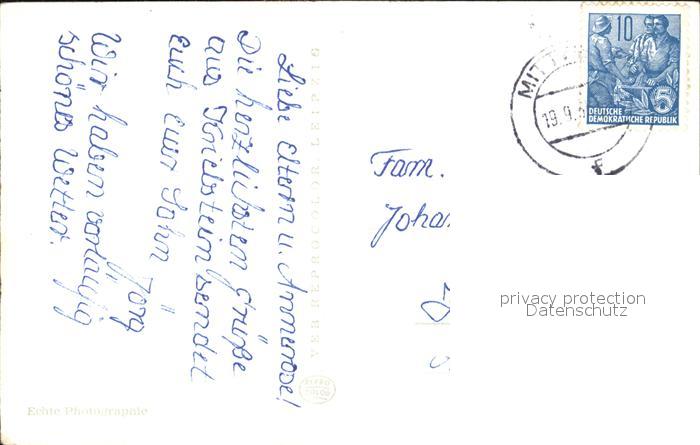 Liebe Eltern u. Annerose!
Die herzlichsten Grüße
aus Kriebstein sendet
Euch euer Sohn
Jörg
Wir haben vorläufig
schönes Wetter.
VEB REPROCOLOR LEIPZIG
Echte Photographie
10
DEUTSCHE
DEMOKRATISCHE REPUBLIK
5
MITTW
19.9.
f
Fam.
Joha
privacy protection
Datenschutz